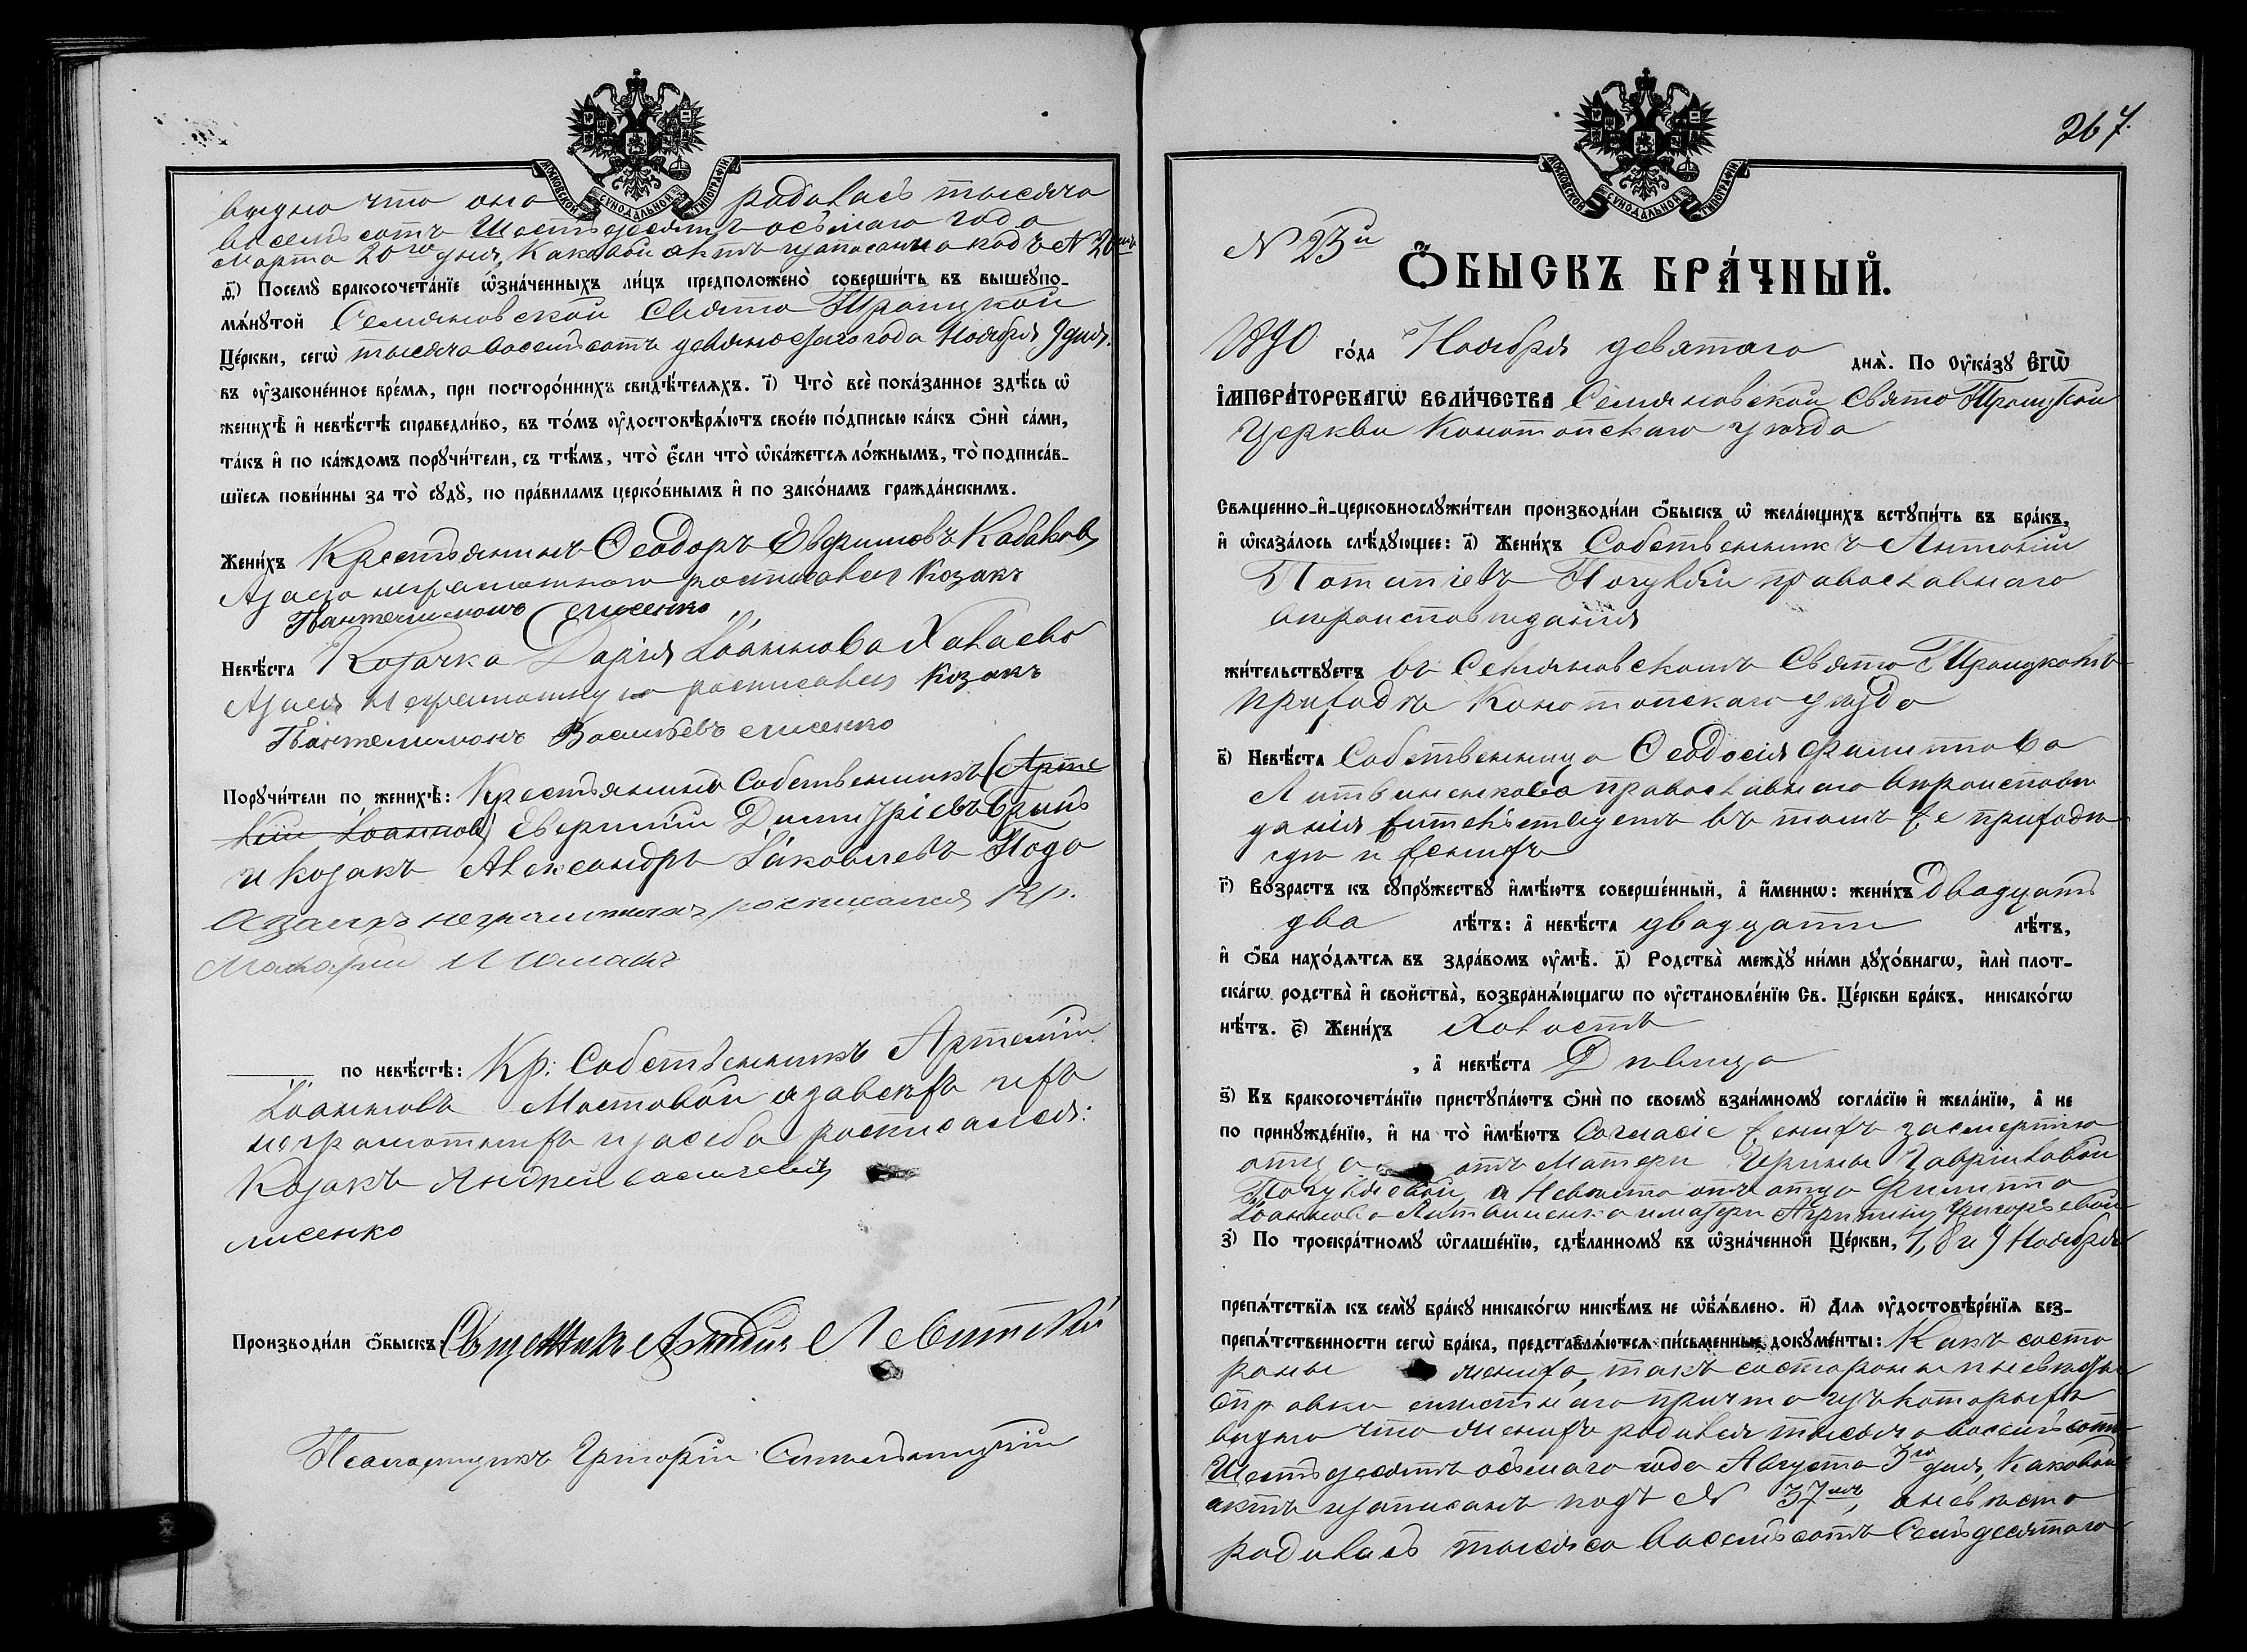 МОСКОВСКОЙ СѴНОДАЛЬНОЙ ТИПОГРАФІИ
видно что она родилась тысяча
восемьсотъ Шестьдесятъ осьмаго года
Марта 20го дня, Каковой актъ записанъ подъ № 20мъ
д҃) Посемꙋ̀ бракосочета́нїе ѡ҆зна́ченныхъ ли́цъ предположено̀ соверши́ть въ вышеꙋпо-
мѧ́нꙋтой Семяновской Свято Троицкой
Це́ркви, сегѡ̀ тысяча восемьсотъ девяностаго года Ноября 9 дня.
въ ᲂу҆законе́нное вре́мѧ, при посторо́ннихъ свидѣ́телѧхъ. і҃) Что̀ всѐ пока́занное здѣ́сь ѡ҆
женихѣ̀ и҆ невѣ́стѣ справедли́во, въ то́мъ ᲂу҆достовѣрѧ́ютъ свое́ю по́дписью ка́къ ѻ҆нѝ са́ми,
та́къ и҆ по ка́ждомъ порꙋчи́тели, съ тѣ́мъ, что̀ є҆́сли что̀ ѡ҆ка́жетсѧ ло́жнымъ, то̀ подписа́в-
шїесѧ пови́нны за то̀ сꙋдꙋ̀, по пра́виламъ церко́внымъ и҆ по зако́намъ гражда́нскимъ.
Жени́хъ Крестьянинъ Ѳеодоръ Евфимовъ Кабаковъ
А за него неграмотнаго росписался Козакъ
Пантелимонъ Лисенко
Невѣ́ста Козачка Дарія Іоаннова
А за ея неграмотную росписался Козакъ
Пантелимонъ Васильевъ лисенко
Порꙋчи́тели по женихѣ̀: Крестьянинъ Собственникъ (Арте
мій Іоанновъ) Евфимій Димитріевъ
и козакъ Александръ Іаковлевъ
А за ихъ неграмотныхъ росписался Кр.
Макарій
по невѣ́стѣ: Кр: Собственникъ Артемій
Іоанновъ Мостовой а за всѣхъ ихъ
неграмотныхъ и за себя росписался:
Козакъ Андрей васильевъ
лисенко
Производи́ли ѻ҆́быскъ: Священникъ Левитскій
Псаломщикъ Григорій
267.
МОСКОВСКОЙ СѴНОДАЛЬНОЙ ТИПОГРАФІИ
№ 23й
Ѻ҆́БЫСКЪ БРА́ЧНЫЙ.
1890 го́да Ноября девятаго днѧ̀. По Оу҆ка́зꙋ Є҆гѡ̀
І҆мпера́торскагѡ Вели́чества Семяновской Свято Троицкой
Церкви Конотопскаго уѣзда
Свѧщенно-и҆-церковнослꙋжи́тели производи́ли ѻ҆́быскъ ѡ҆ жела́ющихъ встꙋпи́ть въ бра́къ,
и҆ ѡ҆каза́лось слѣ́дꙋющее: а҃) Жени́хъ Собственникъ Антоній
Потапіевъ православнаго
вѣроисповѣданія
жи́тельствꙋетъ въ Семяновскомъ Свято Троицкомъ
приходѣ Конотопскаго уѣзда
в҃) Невѣ́ста Собственница Ѳеодосія Филиппова
Литвиненкова православнаго вѣроисповѣ
данія жительствуетъ въ томъ же приходѣ
гдѣ и женихъ
г҃) Во́зрастъ къ сꙋпрꙋ́жествꙋ и҆мѣ́ютъ соверше́нный, а҆ и҆́меннѡ: жени́хъ Двадцать
два лѣ́тъ: а҆ невѣ́ста двадцати лѣ́тъ,
и҆ ѻ҆́ба нахо́дѧтсѧ въ здра́вомъ ᲂу҆мѣ̀. д҃) Родства̀ междꙋ̀ ни́ми дꙋхо́внагѡ, и҆лѝ плот-
ска́гѡ родства̀ и҆ свойства̀, возбранѧ́ющагѡ по ᲂу҆становле́нїю Св. Це́ркви бра́къ, никако́гѡ
нѣ́тъ. є҃) Жени́хъ Холостъ
, а҆ невѣ́ста Дѣвица
ѕ҃) Къ бракосочета́нїю пристꙋпа́ютъ ѻ҆нѝ по своемꙋ̀ взаи́мномꙋ согла́сїю и҆ жела́нїю, а҆ не
по принꙋжде́нїю, и҆ на то̀ и҆мѣ́ютъ Согласіе женихъ засмертію
отца отъ Матери Ирины Гавріиловой
а Невѣста отъ отца Филиппа
Іоаннова Литвиненка и матери Григорьевой
з҃) По троекра́тномꙋ ѡ҆глаше́нїю, сдѣ́ланномꙋ въ ѡ҆зна́ченной Це́ркви, 1, 8 и 9 Ноября
препѧ́тствїѧ къ семꙋ̀ бра́кꙋ никако́гѡ никѣ́мъ не ѡ҆б̾ѧ́влено. и҃) Длѧ ᲂу҆достовѣре́нїѧ без-
препѧ́тственности сегѡ̀ бра́ка, представлѧ́ютсѧ пи́сьменные докꙋме́нты: Какъ состо
роны жениха, такъ состороны и невѣсты
справки мѣстнаго причта изъ которыхъ
видно что женихъ родился тысяча восемьсотъ
Шестьдесятъ осьмаго года Августа 3го дня, Каковой
актъ записанъ подъ № 37мъ, а невѣста
родилась тысяча восемьсотъ Семьдесятаго